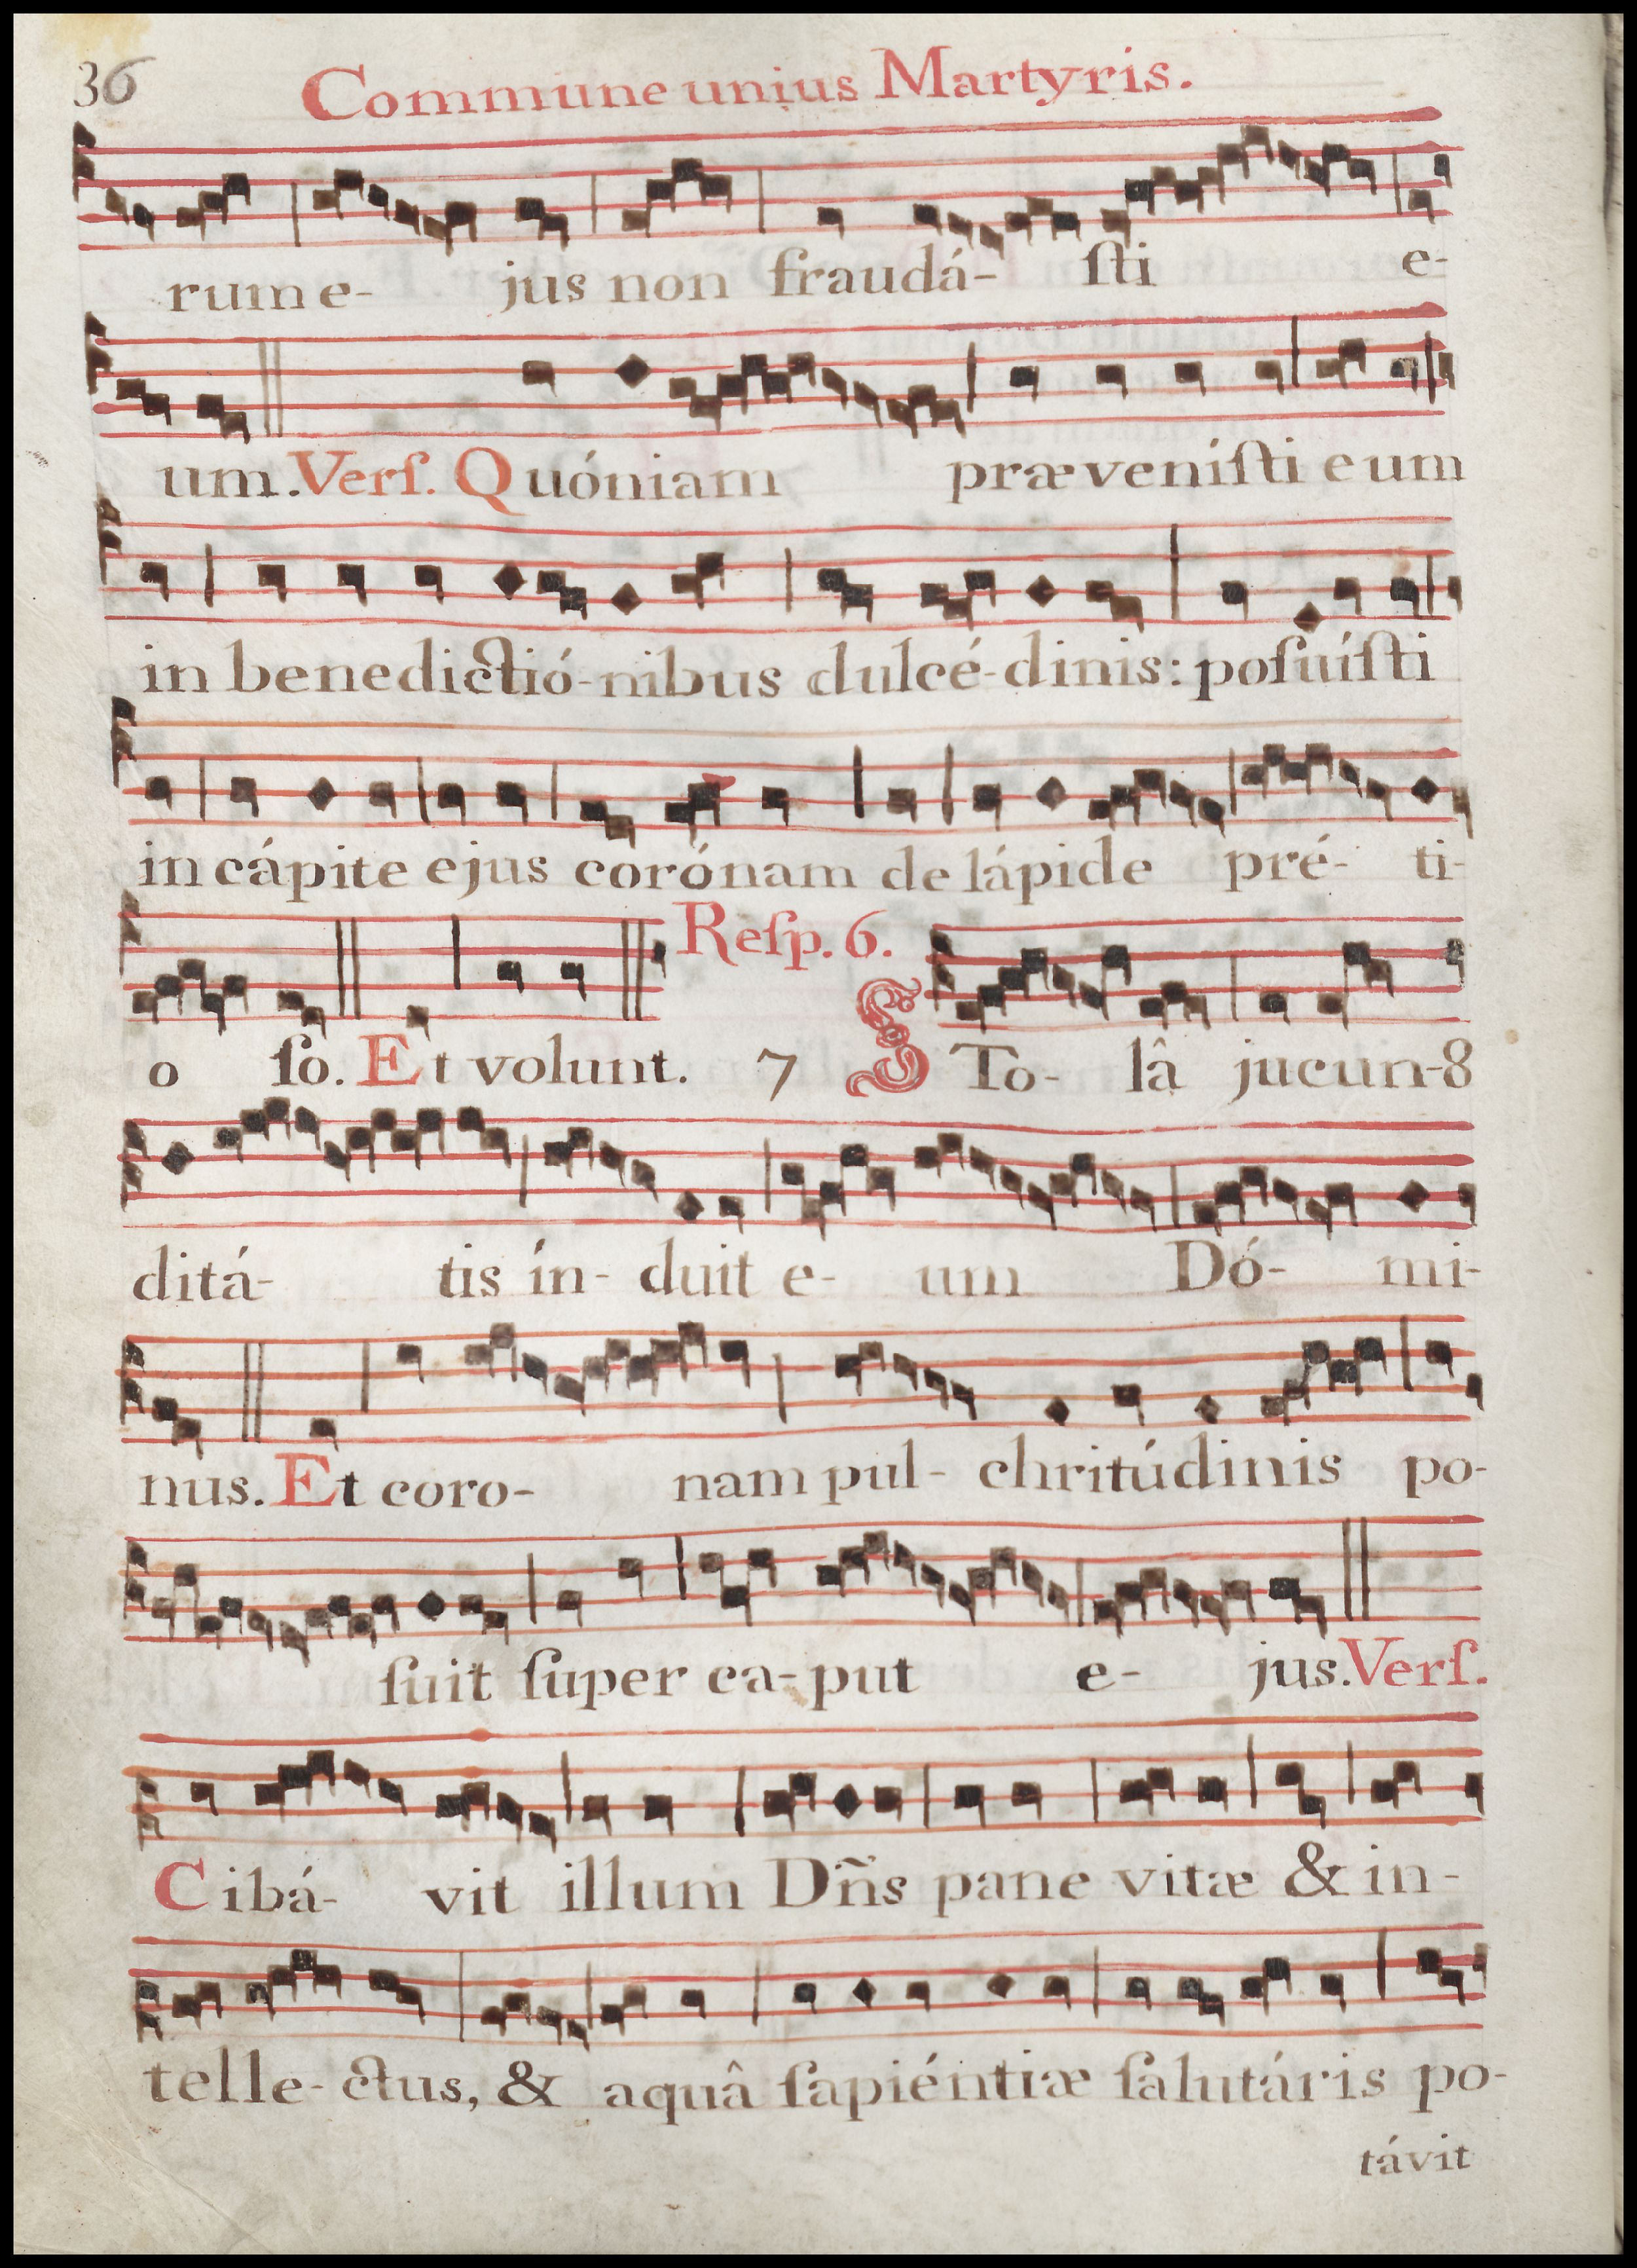 36 Commune unius Martyris.
rum e- jus non fraudá- ſti e-
um. Verſ. Quóniam præveníſti eum
in benedictió-nibus dulcé-dinis: poſuíſti
in cápite ejus corónam de lápide pré- ti-
Reſp. 6.
o ſo. Et volunt. 7 STo- lâ jucun-8
ditá- tis ín- duit e- um Dó- mi-
nus. Et coro- nam pul- chritúdinis po-
ſuit ſuper ca-put e- jus. Verſ.
Cibá- vit illum Dñs pane vitæ & in-
telle- ctus, & aquâ ſapiéntiæ ſalutáris po-
távit